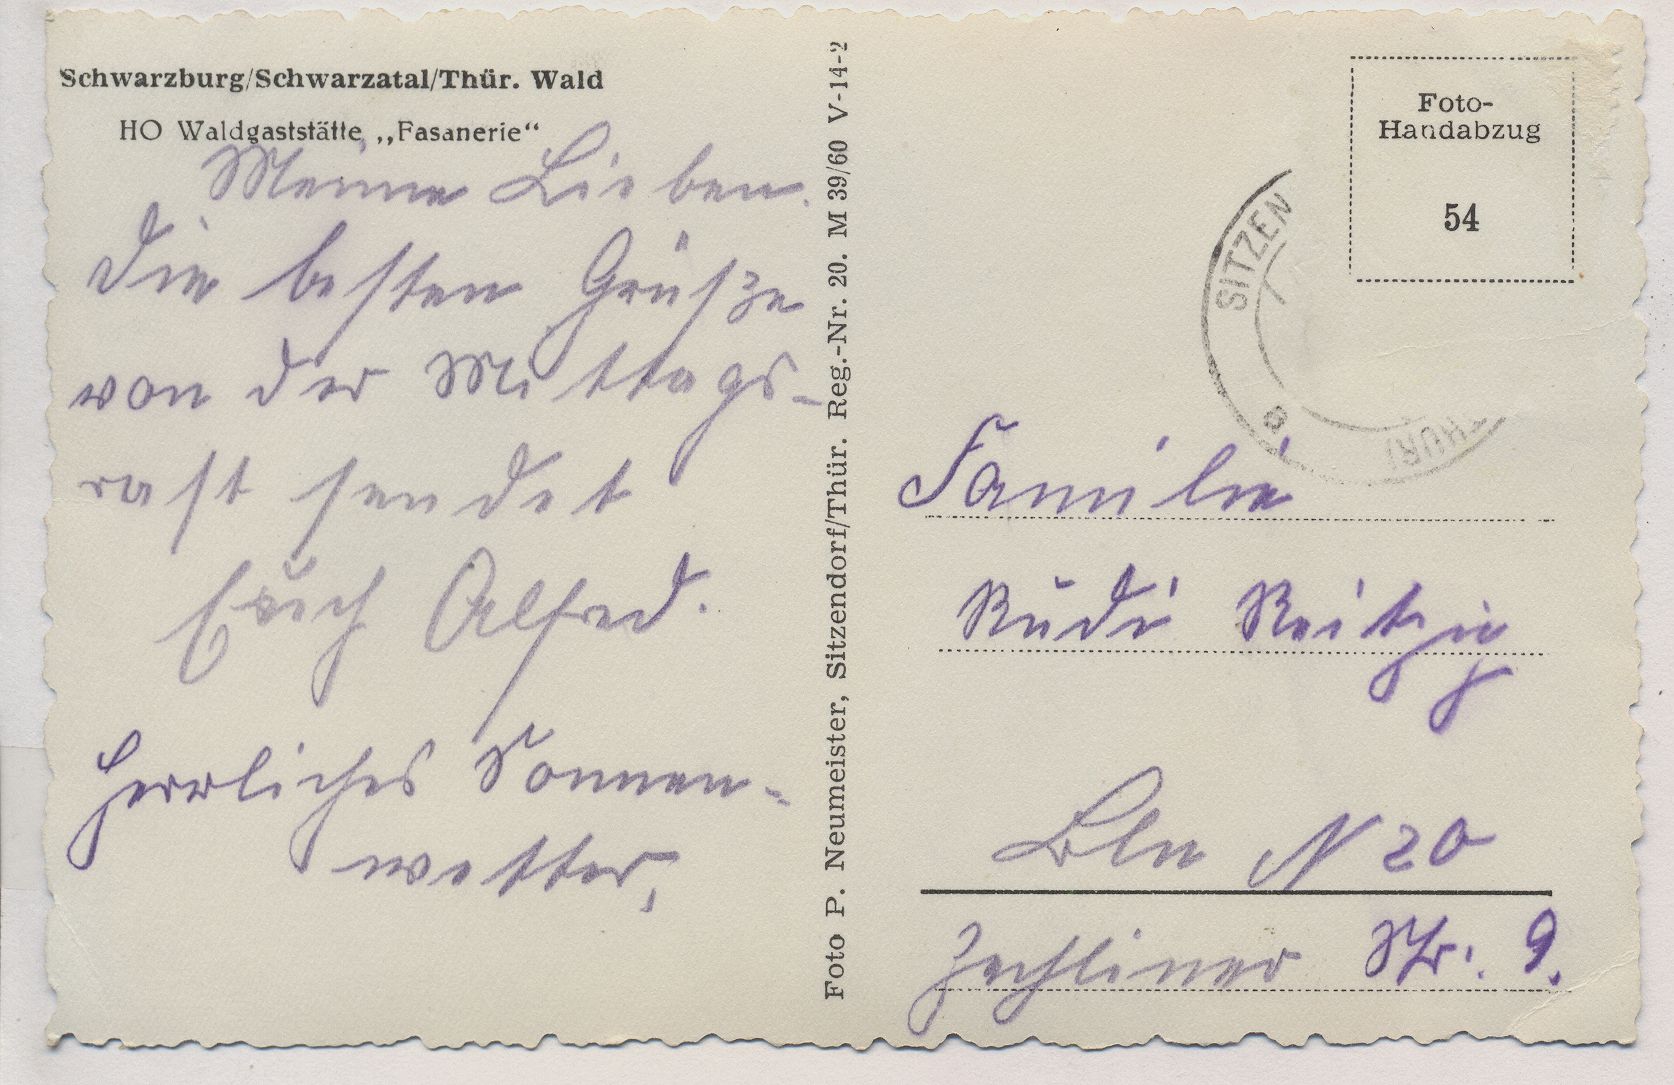 Schwarzburg/Schwarzatal/Thür. Wald
HO Waldgaststätte „Fasanerie“
Meine Lieben.
Die besten Grüße
von der Mittags-
rast sendet
Erich Alfred.
Herrliches Sonnen-
wetter.
Foto P. Neumeister, Sitzendorf/Thür. Reg.-Nr. 20. M 39/60 V-14-2
Foto-
Handabzug
54
SITZEN
THÜR
Familie
Rudi Reitzig
Bln N 20
Zechliner Str. 9.